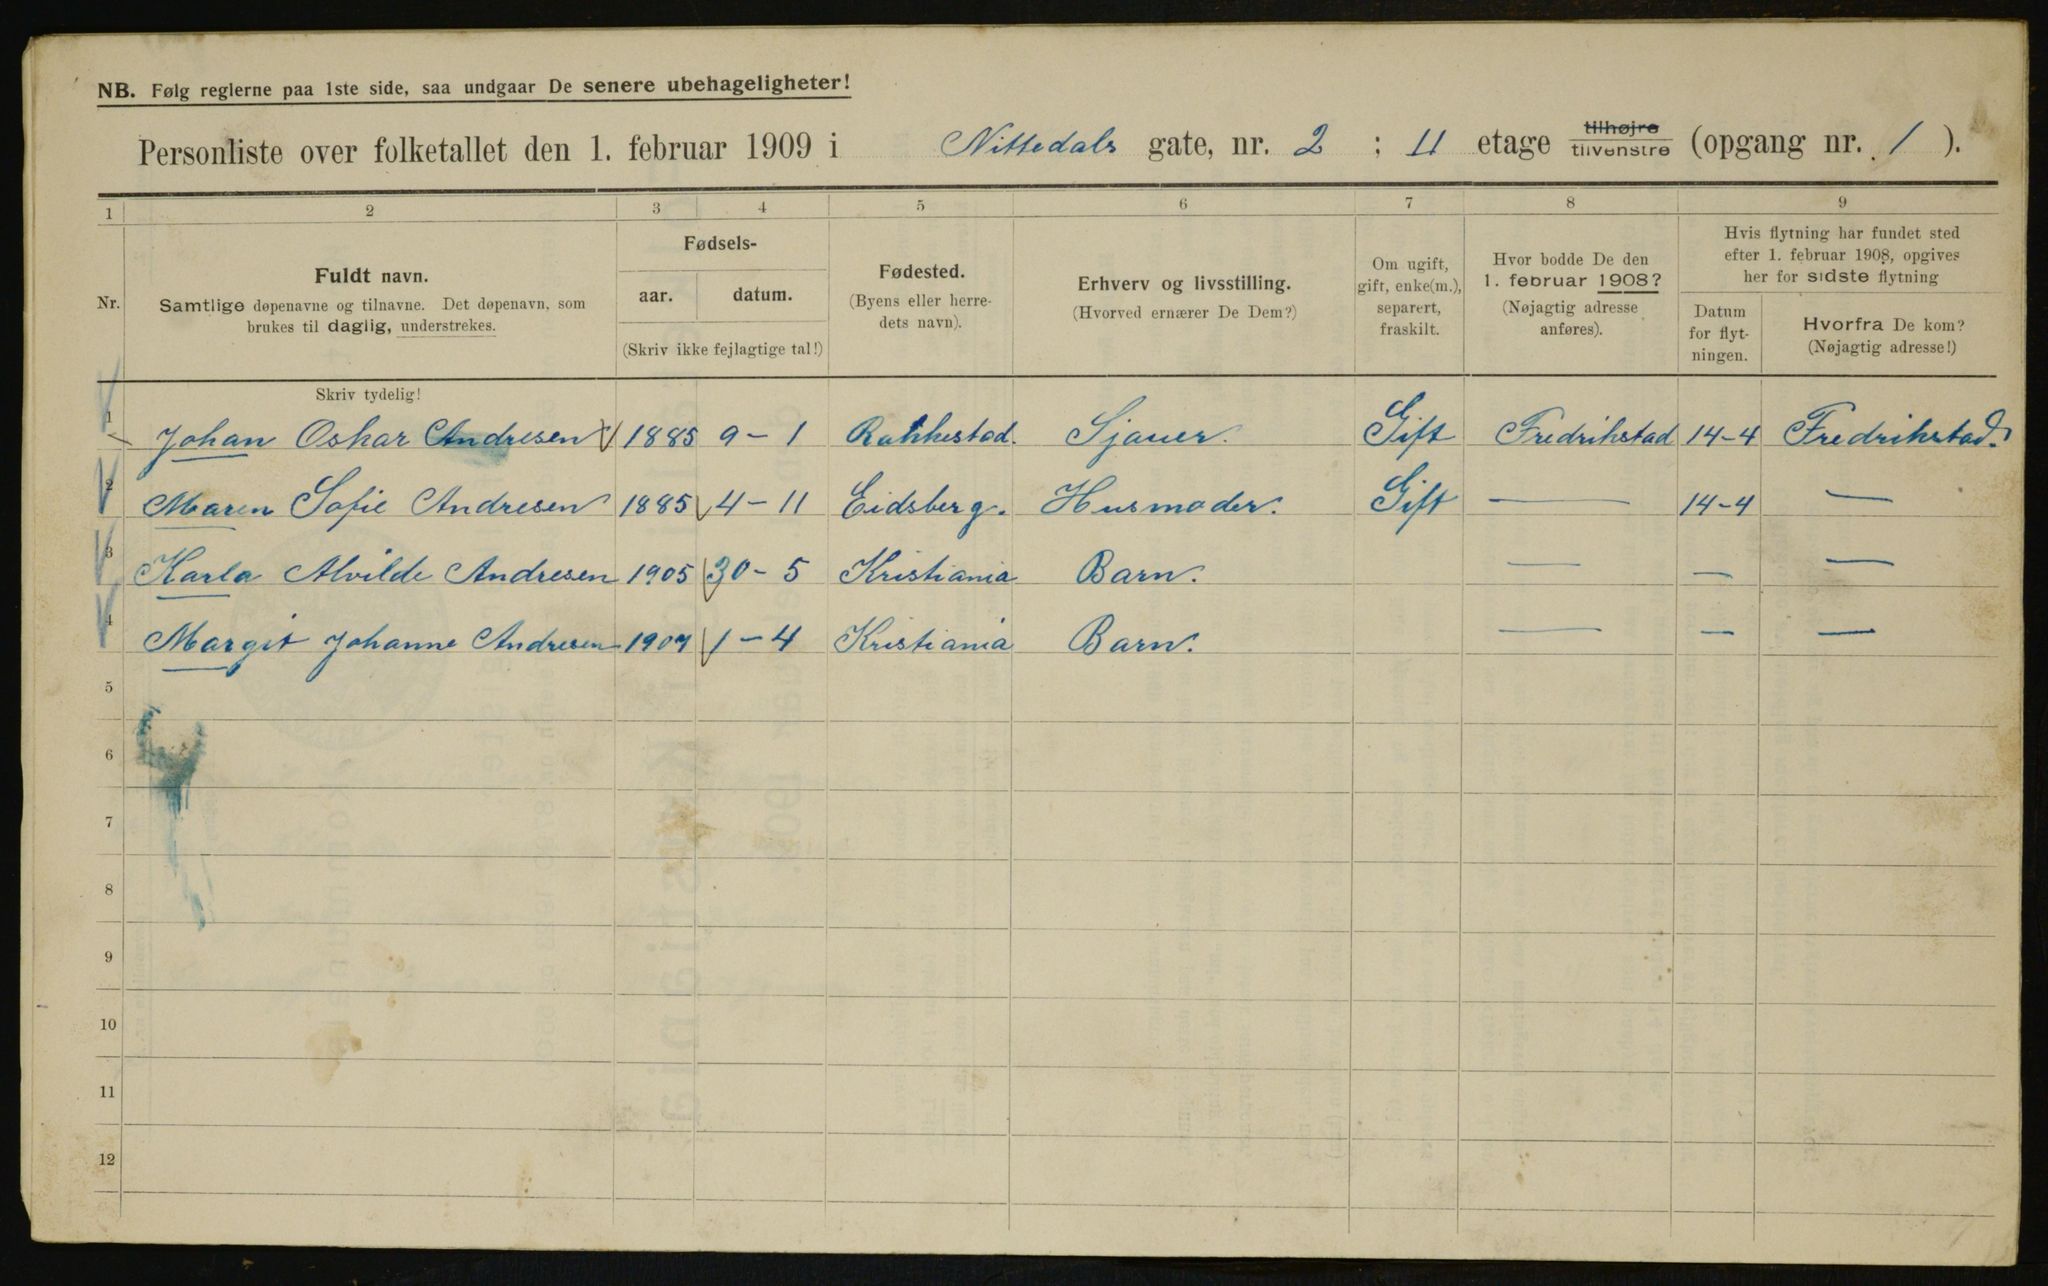 NB. Følg reglerne paa 1ste side, saa undgaar De senere ubehageligheter!
Personliste over folketallet den 1. februar 1909 i Nittedals gate, nr. 2 ; II etage tilhøjre tilvenstre (opgang nr. 1 ).
1 2 3 4 5 6 7 8 9
Nr.
Fuldt navn.
Samtlige døpenavne og tilnavne. Det døpenavn, som
brukes til daglig, understrekes.
Fødsels-
aar. datum.
(Skriv ikke fejlagtige tal!)
Fødested.
(Byens eller herre-
dets navn).
Erhverv og livsstilling.
(Hvorved ernærer De Dem?)
Om ugift,
gift, enke(m.),
separert,
fraskilt.
Hvor bodde De den
1. februar 1908?
(Nøjagtig adresse
anføres).
Hvis flytning har fundet sted
efter 1. februar 1908, opgives
her for sidste flytning
Datum
for flyt-
ningen.
Hvorfra De kom?
(Nøjagtig adresse!)
Skriv tydelig!
1 Johan Oskar Andresen 1885 9-1 Rakkestad. Sjauer. Gift Fredrikstad 14-4 Fredrikstad.
2 Maren Sofie Andresen 1885 4-11 Eidsberg. Husmoder. Gift — 14-4 —
3 Karla Alvilde Andresen 1905 30-5 Kristiania Barn. — — —
4 Margit Johanne Andresen 1907 1-4 Kristiania Barn. — — —
5
6
7
8
9
10
11
12